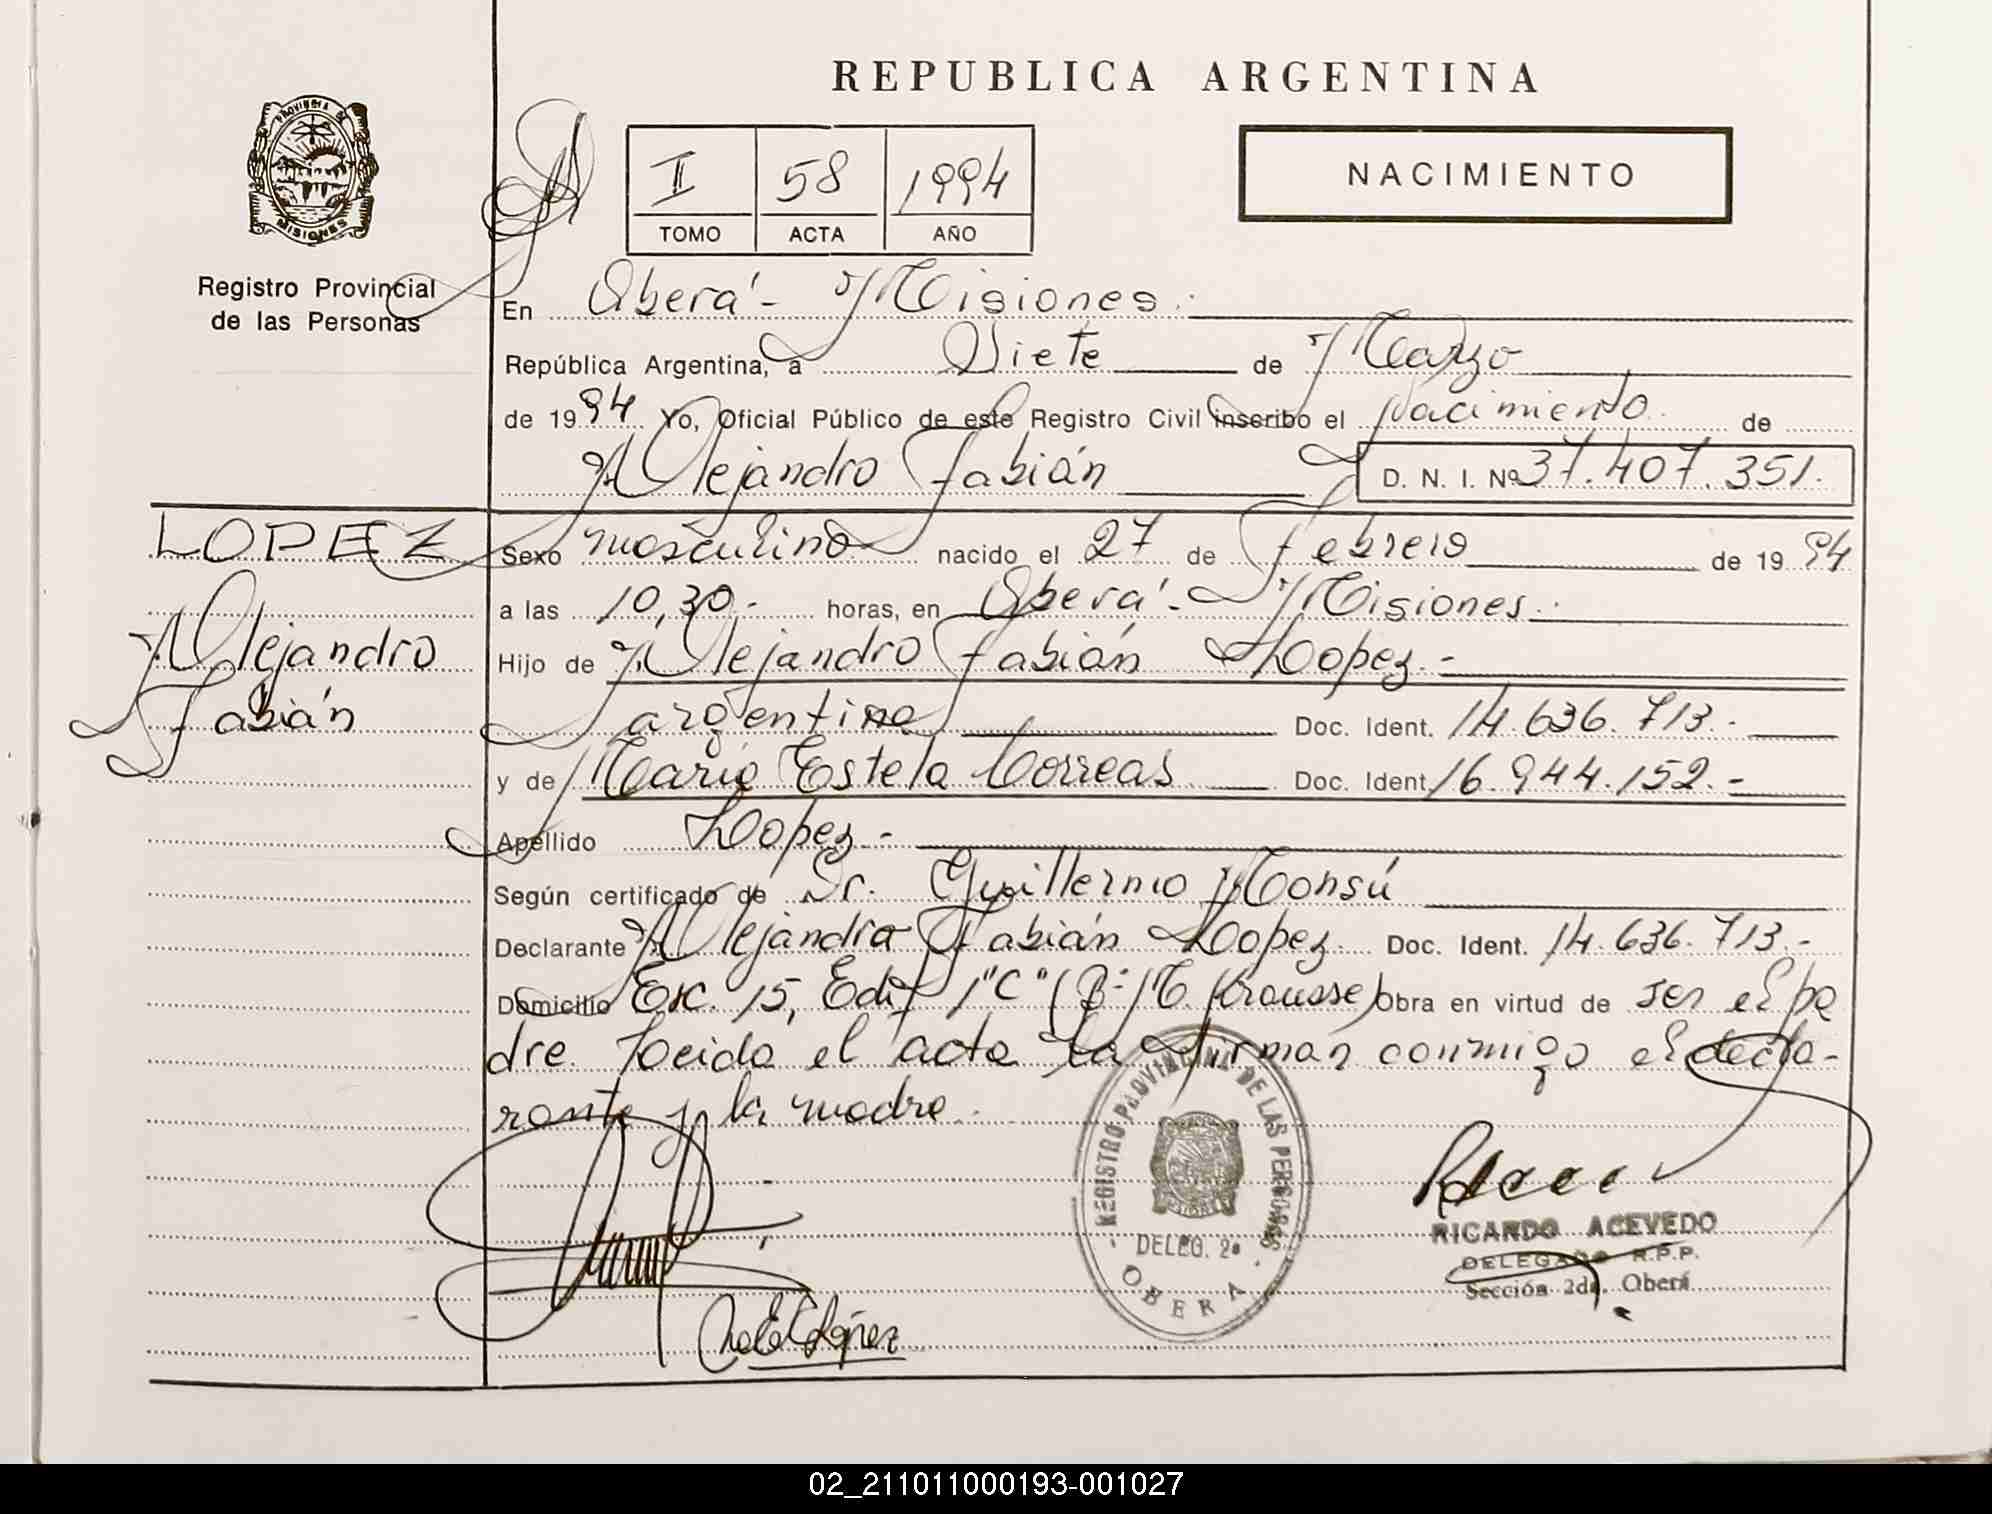 REPUBLICA ARGENTINA
PROVINCIA DE
MISIONES
Registro Provincial
de las Personas
I 58 1994
TOMO ACTA AÑO
NACIMIENTO
En Oberá - Misiones.
República Argentina, a Siete de Marzo
de 1994 Yo, Oficial Público de este Registro Civil inscribo el Nacimiento de
Alejandro Fabián D. N. I. Nº 37.407.351.
LOPEZ
Alejandro
Fabián
Sexo masculino nacido el 27 de Febrero de 1994
a las 10,30.- horas, en Oberá - Misiones.
Hijo de Alejandro Fabián Lopez.-
argentino Doc. Ident. 14.636.713.-
y de María Estela Correas Doc. Ident. 16.944.152.-
Apellido Lopez -
Según certificado de Dr. Guillermo Monsú
Declarante Alejandro Fabián Lopez Doc. Ident. 14.636.713.-
Domicilio Esc. 15, Edif 1 "C" (Bº M. Krausse) Obra en virtud de ser el pa
dre. Leida el acta la firman conmigo el decla-
rante y la madre.
REGISTRO PROVINCIAL DE LAS PERSONAS
DELEG. 2ª
OBERA
RICARDO ACEVEDO
DELEGADO R.P.P.
Sección 2da. Oberá
02_211011000193-001027